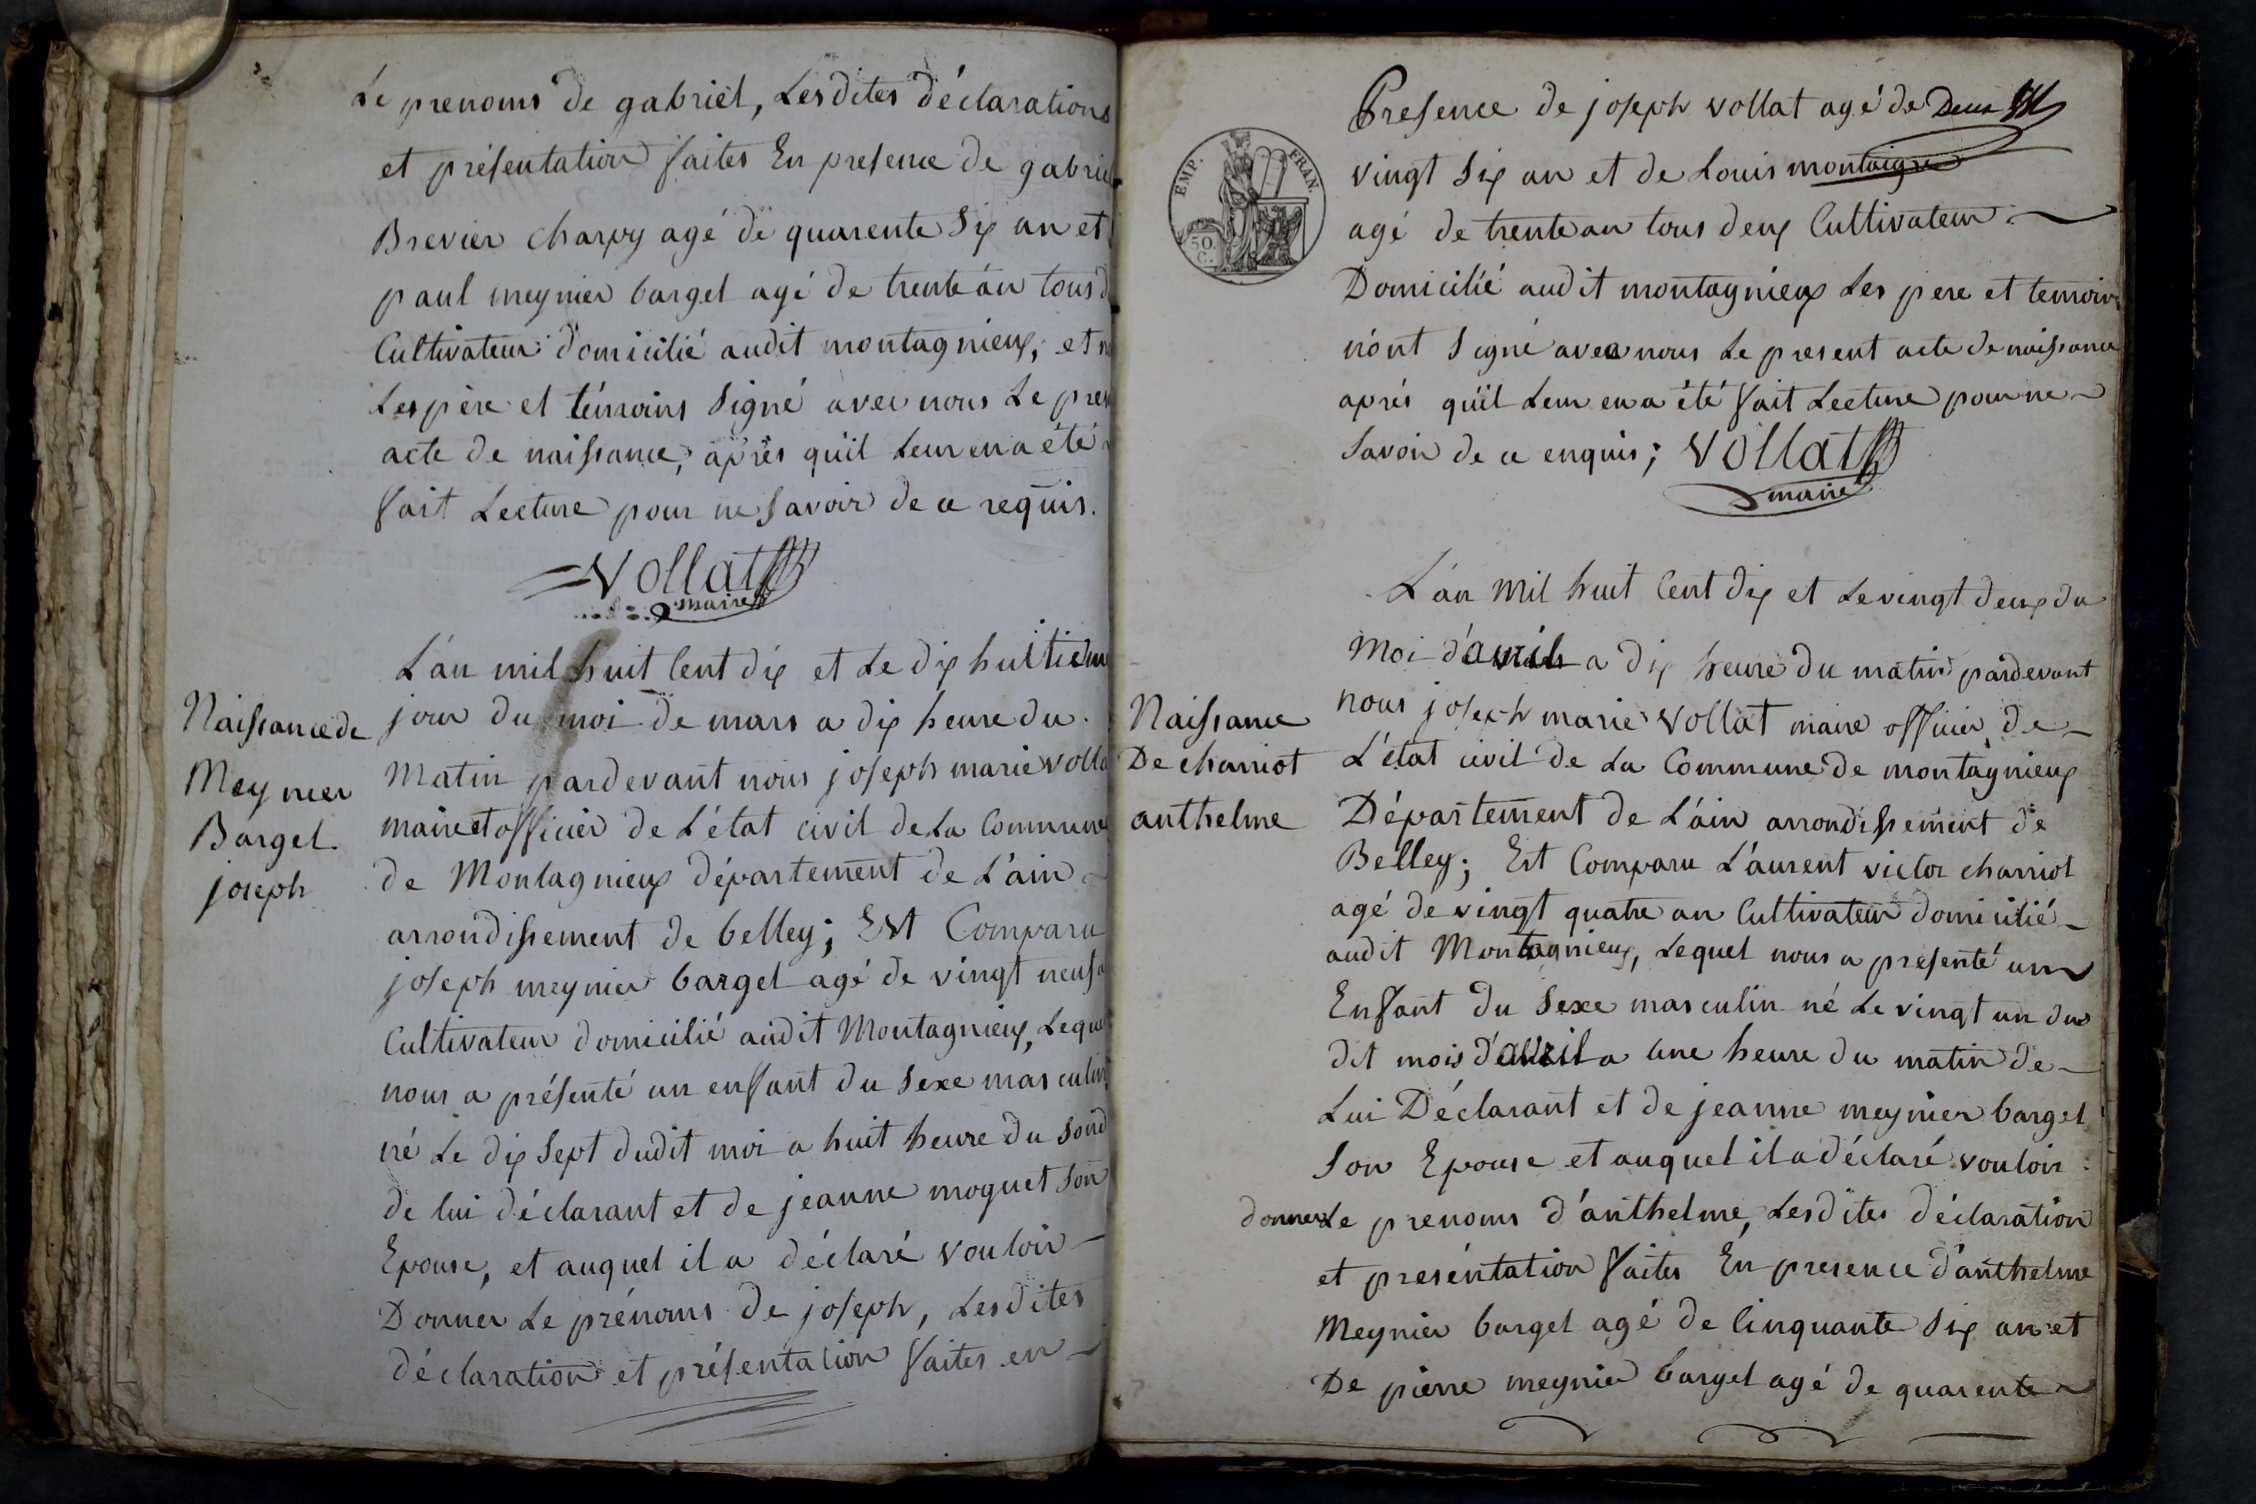 Le prenoms de gabriel, Lesdites déclarations
et présentation faites En presence de gabriel
Brevier charvy agé de quarente Six an et
paul meynier barget agé de trente án tous d
Cultivateur domicilié audit montagnieux, et n
Les père et témoins Signé avec nous Le pres
acte de naissance, après qu'il Leur en a été
fait Lecture pour ne Savoir de ce requis.
Vollat
maire
L'án mil huit Cent dix et Le dix huitieme
jour du moi de mars a dix heure du
Matin pardevant nous joseph marie Volla
maire et officier de L'état civil de La Commune
de Montagnieux département de L'ain
arrondissement de belley; Est Comparu
joseph meynier barget agé de vingt neuf a
Cultivateur domicilié audit Montagnieux, Leque
nous a présenté un enfant du Sexe masculin
né Le dix Sept dudit moi a huit heure du Soir d
de lui déclarant et de jeanne moquet Son
Epouse, et auquel il a déclaré vouloir
Donner Le prénoms de joseph, Lesdites
déclaration et présentation faites en
Naissance de
Meynier
Barget
joseph
EMP. FRAN.
50
C.
Presence de joseph vollat agé de Deux
vingt Six an et de Louis montaigne
agé de trente an tous deux Cultivateur
Domicilié audit montagnieux Les pere et temoins
n'ont Signé avec nous Le present acte de naissance
aprés qu'il Leur en a été fait Lecture pour ne
Savoir de ce enquis; Vollat
maire
L'án Mil huit Cent dix et Le vingt deux du
Moi d'avril a dix heure du matin pardevant
nous joseph marie Vollat maire officier de
L'état civil de La Commune de montagnieux
Département de L'ain arrondissement de
Belley; Est Comparu L'aurent victor charriot
agé de vingt quatre an Cultivateur domicilié
audit Montagnieux, Lequel nous a presenté un
Enfant du Sexe masculin né Le vingt un du
dit mois d'avril a Une heure du matin de
Lui Déclarant et de jeanne meynier barget
Son Epouse et auquel il a déclaré vouloir
donner Le prenoms d'anthelme, Lesdites déclaration
et presentation faites En presence d'anthelme
Meynier barget agé de Cinquante Six an et
De pierre meynier barget agé de quarente
Naissance
De charriot
anthelme